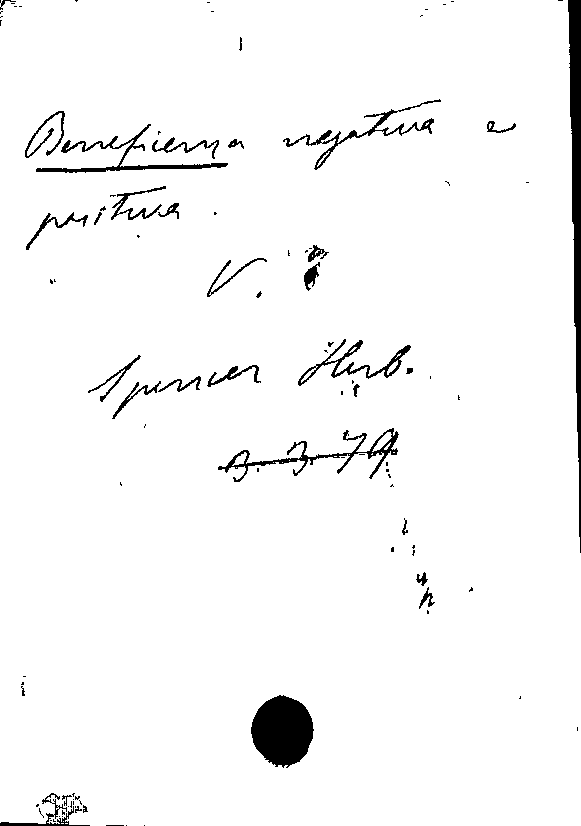 Beneficenza negativa e
positiva.
V.
Spencer Herb.
B. 3. 79